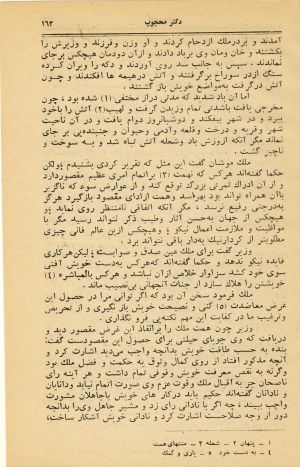 دکتر محجوب ۱۶۳
آمدند و بردرملك ازدحام کردند و او وزن و فرزند و وزیرش را
بکشتند و خان ومان وی برباد دادند و ازآن دودمان هیچکس برجای
نماندند . سپس به جانب سد روی آوردند و دکه را ویران کرده
سنگ ازدر سوراخ برگرفتند و آتش درهیمه ها افکندند و چون
آتش درگرفت به مواضع خویش باز گشتند .
اما آن باد شدید که مدتی دراز مختفی (۱) شده بود ، چون
مخرجی یافت باشدتی تمام وزیدن گرفت و لهیب (۲) آتش را باخود
ببرد و در شهر بیفکند و دوشبانروز دوام یافت و در آن ناحیت
شهر وقریه و درخت و قلعه و آدمی وحیوان و جنبنده‌یی بر جای
نماند مگر آنکه ازوزش باد وشعله آتش تباه شد و به سوخت و
ناچیز گشت .
ملك موشان گفت این مثل که تقریر کردی بشنیدم ولکن
حکما گفته‌اند هرکس که نهمت (۳) براتمام امری عظیم مقصوردارد
و از آن ادراك ثمرتی بزرگ توقع کند و از عوارض سوء که ناگزیر
باآن همراه تواند بود بهراسد و همت ازادای مقصود بازگیرد هرگز
به‌درجتی رفیع نرسد ، مگر آنکه اتفاقی نامنتظر روی نماید و
هیچکس از جهان به‌حسن آثار وطیب ذکر نتواند رسید مگر با
مواظبت و ملازمت اعمال نیکو و هیچکس ازین عالم فانی چیزی
مطلوبتر از کردارنیك به‌دار باقی نتواند برد .
وزیر گفت برای ملك مبین صدق و صوابست لیکن هرکاری
فایده نیکو ندهد و حکما گفته‌اند که هرکس به‌دست خویش آفتی
سوی خود کشد سزاوار خلاص ازآن نباشد و هرکس بالمباشره (۴)
خویشتن را هلاك سازد از جنات آنجهانی بی‌نصیب ماند .
ملك فرمود سخن آن بود که اگر توانی مرا در حصول این
غرض معاضدت (۵) کنی و نصیحت خویش بازنگیری و از تحریض
وترغیب ما در کفایت این مهم نکته‌یی فرو نگذاری .
وزیر چون همت ملك را برانفاذ این غرض مقصور دید و
دریافت که وی جویای حیلتی برای حصول این مقصودست گفت:
بنده به حسب طاقت خویش بدانچه واجب می‌دید اشارت کرد و
آنچه مذکور افتاد از روی کمال وثوق به حکمت و فضل ملك بود
وگرنه به نقص معرفت خویش وقوفی تمام داشت و هر آینه رای
ناصحان جز به اقبال ملك وقوت عزم وی صورت اتمام نیابد ودانایان
و نادانان گفته‌اند حکیم باید درکار های خویش باجاهلان مشورت
واجب بیند ، چه اگر نادانی رای زد و مشیر جاهل وی رابدانچه
دور از وجه صلاحست اشارت کرد و نادانی خویش آشکار ساخت،
۱ – پنهان ۲ – شعله ۳ – منتهای همت
۴ – به دست خود ۵ – یاری و کمك